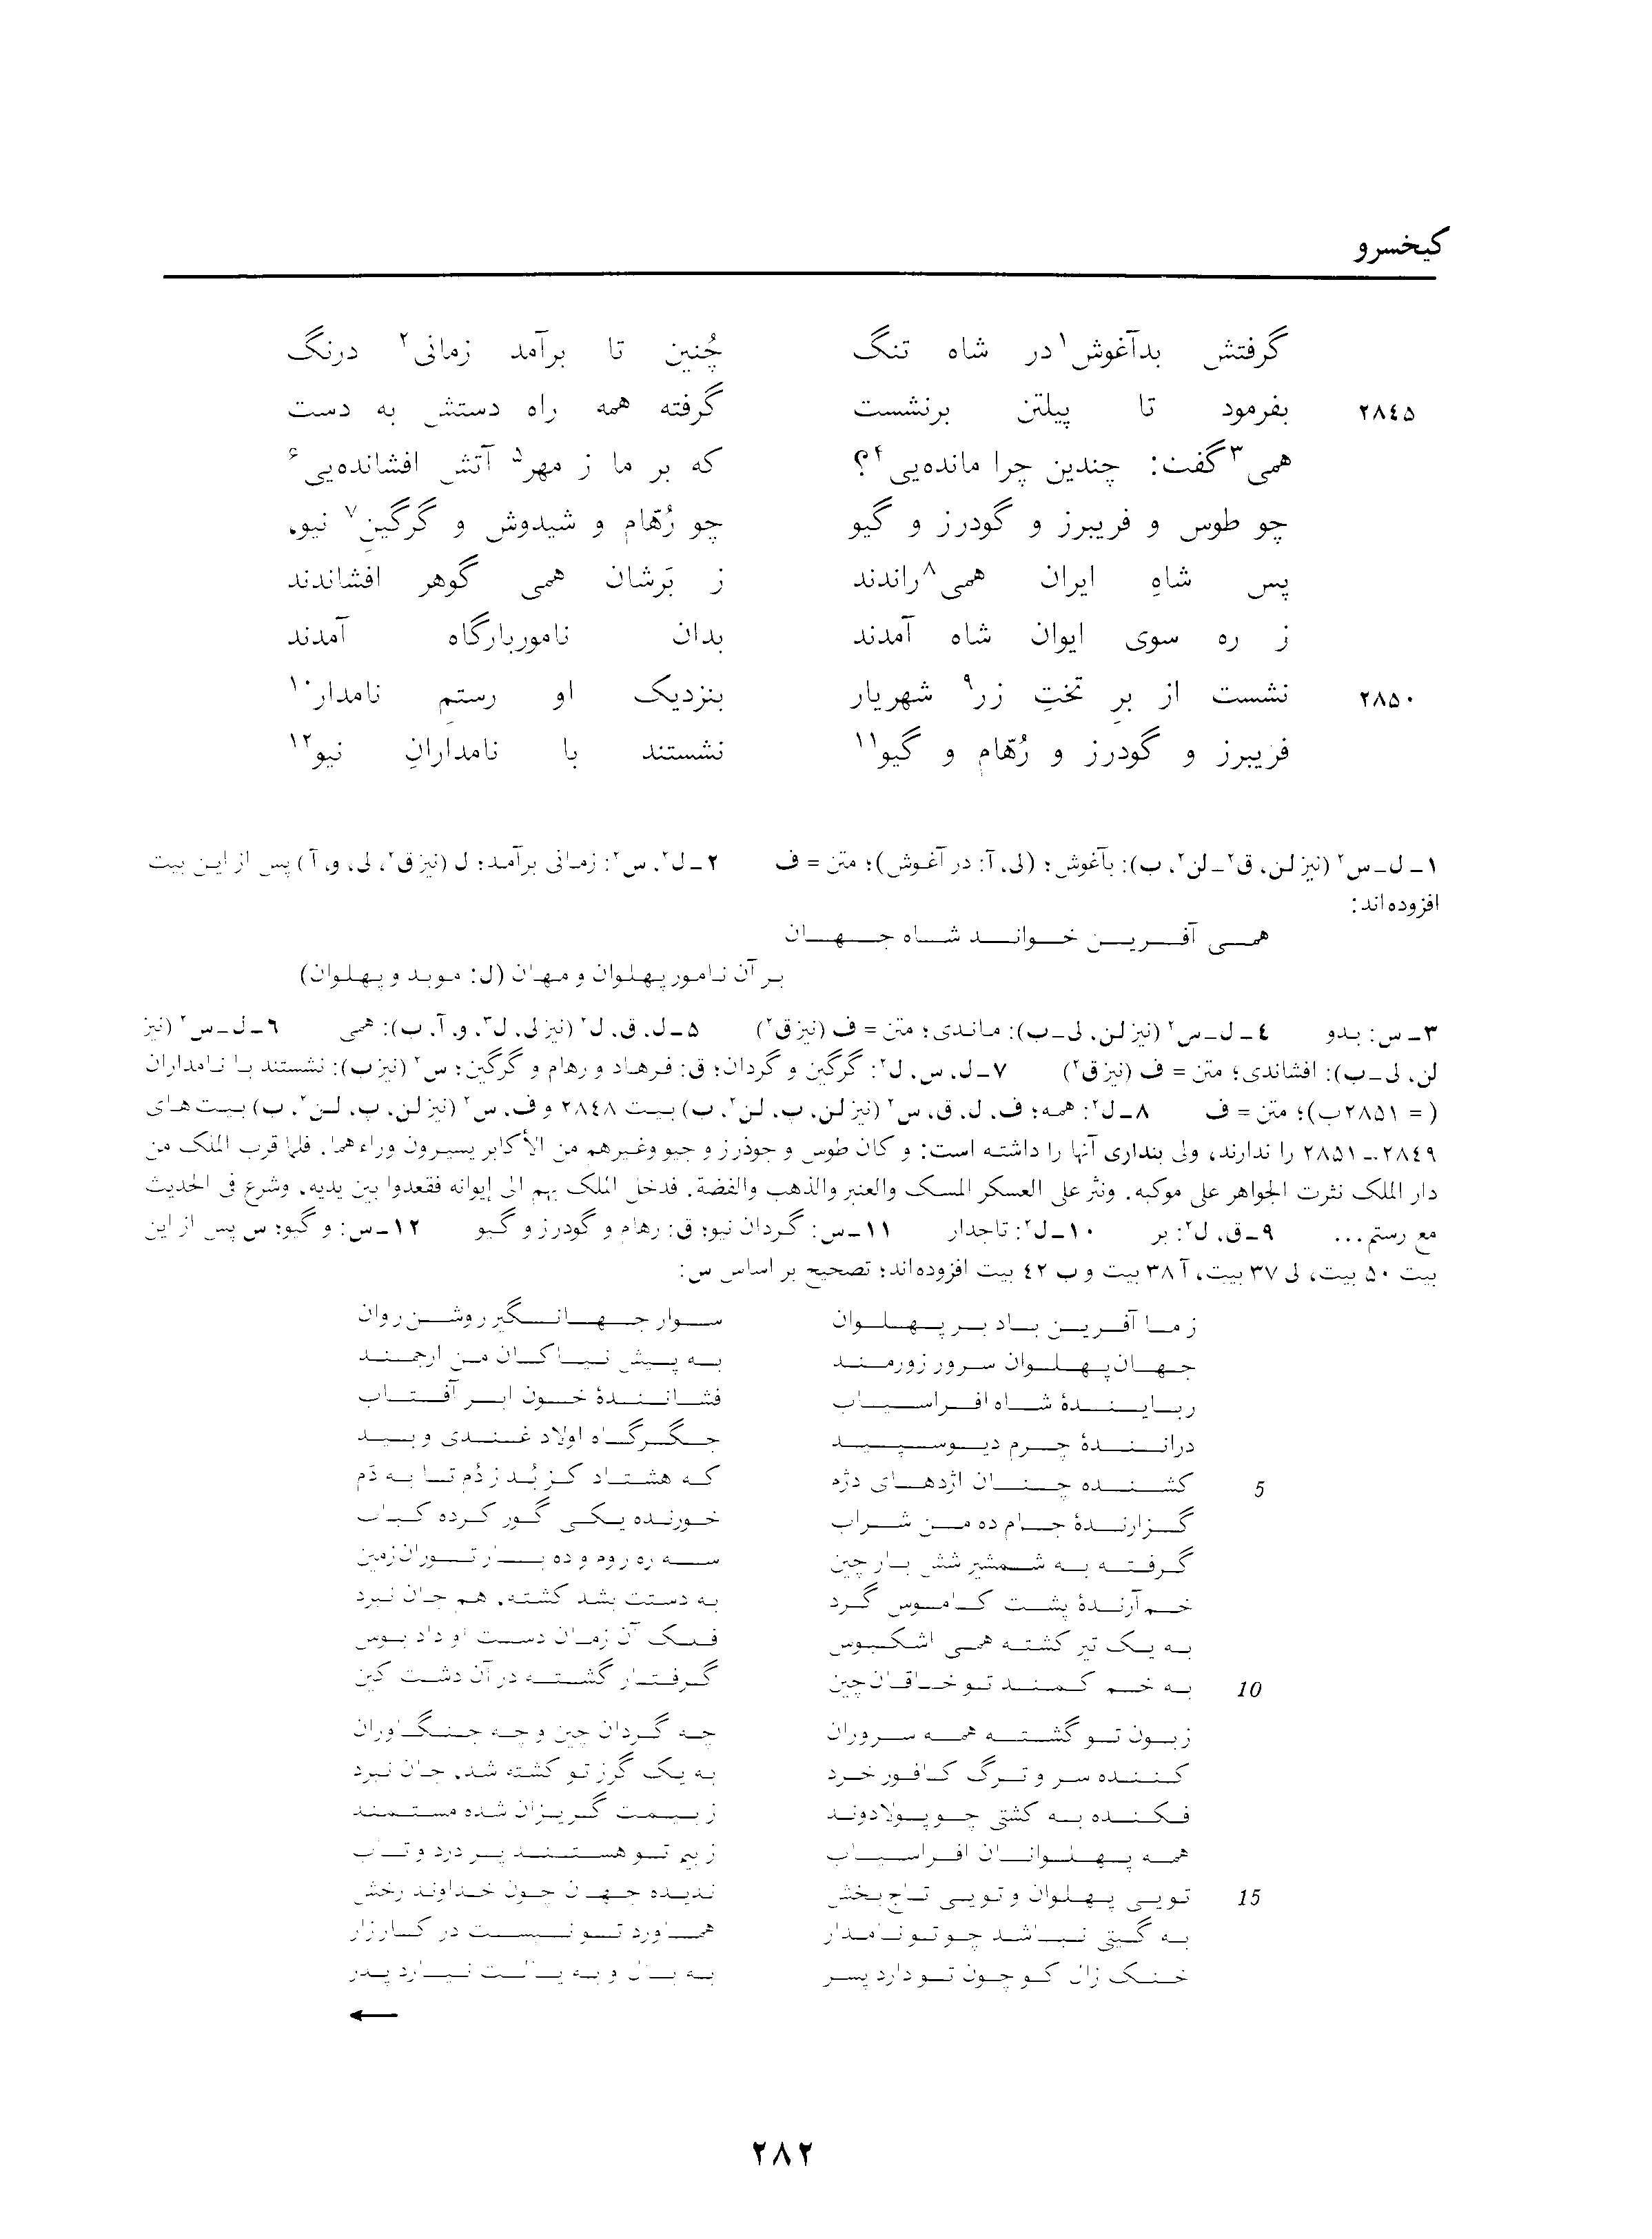 کیخسرو
گرفتش بدآغوش۱ در شاه تنگ چُنین تا برآمد زمانی۲ درنگ
۲۸٤۵ بفرمود تا پیلتن برنشست گرفته همه راه دستش به دست
همی۳ گفت: چندین چرا مانده‌یی۴؟ که بر ما ز مهر۵ آتش افشانده‌یی۶
چو طوس و فریبرز و گودرز و گیو چو رُهّام و شیدوش و گرگینِ۷ نیو،
پس شاهِ ایران همی۸ راندند ز بَرشان همی گوهر افشاندند
ز ره سوی ایوان شاه آمدند بدان نامور‌بارگاه آمدند
۲۸۵۰ نشست از برِ تختِ زر۹ شهریار بنزدیک او رستمِ نامدار۱۰
فریبرز و گودرز و رُهّام و گیو۱۱ نشستند با نامدارانِ نیو۱۲
۱ـ ل ـ س۲ (نیز لن، ق۲ ـ لن۲، ب): بآغوش؛ (لی، آ: در آغوش)؛ متن = ف ۲ـ ل۲، س۲: زمانی برآمد؛ ل (نیز ق۲، لی، و، آ) پس از این بیت
افزوده‌اند:
همی آفرین خواند شاه جهان
بر آن نامور پهلوان و مهان (ل: موبد و پهلوان)
۳ـ س: بدو ٤ـ ل ـ س۲ (نیز لن، لی ـ ب): ماندی؛ متن = ف (نیز ق۲) ۵ـ ل، ق، ل۲ (نیز لی، ل۳، و، آ، ب): همی ٦ـ ل ـ س۲ (نیز
لن، لی ـ ب): افشاندی؛ متن = ف (نیز ق۲) ۷ـ ل، س، ل۲: گرگین و گردان؛ ق: فرهاد و رهام و گرگین؛ س۲ (نیز ب): نشستند با نامداران
(= ۲۸۵۱ب)؛ متن = ف ۸ـ ل۲: همه؛ ف، ل، ق، س۲ (نیز لن، پ، لن۲، ب) بیت ۲۸٤۸ و ف، س۲ (نیز لن، پ، لن۲، ب) بیت‌های
۲۸٤۹ـ۲۸۵۱ را ندارند، ولی بنداری آنها را داشته است: و کان طوس و جوذرز و جیو وغیرهم من الأکابر یسیرون وراءهما. فلما قرب الملک من
دار الملک نثرت الجواهر علی موکبه. ونثر علی العسکر المسک والعنبر والذهب والفضة. فدخل الملک بهم الی إیوانه فقعدوا بین یدیه. وشرع فی الحدیث
مع رستم... ۹ـ ق، ل۲: بر ۱۰ـ ل۲: تاجدار ۱۱ـ س: گردان نیو؛ ق: رهام و گودرز و گیو ۱۲ـ س: و گیو؛ س پس از این
بیت ۵۰ بیت، لی ۳۷ بیت، آ ۳۸ بیت و ب ٤۲ بیت افزوده‌اند؛ تصحیح بر اساس س:
ز ما آفرین باد بر پهلوان سوار جهانگیر روشن‌روان
جهان‌پهلوان سرور زورمند به پیش نیاکان من ارجمند
ربایندهٔ شاه افراسیاب فشانندهٔ خون ابر آفتاب
درانندهٔ چرم دیو سپید جگرگاه اولاد غندی و بید
5 کشنده چنان اژدهای دژم که هشتاد گز بُد ز دُم تا به دَم
گزارندهٔ جام ده من شراب خورنده یکی گور کرده کباب
گرفته به شمشیر شش بار چین سه ره روم و ده بار توران‌زمین
خم‌آرندهٔ پشت کاموس گرد به دستت بشد کشته، هم جان نبرد
به یک تیر کشته همی اشکبوس فلک آن زمان دست او داد بوس
10 به خم کمند تو خاقان چین گرفتار گشته در آن دشت کین
زبون تو گشته همه سروران چه گردان چین و چه جنگاوران
کننده سر و ترگ کافور خرد به یک گرز تو کشته شد، جان نبرد
فکنده به کشتی چو پولادوند ز بیمت گریزان شده مستمند
همه پهلوانان افراسیاب ز بیم تو هستند پر درد و تاب
15 تویی پهلوان و تویی تاج‌بخش ندیده جهان چون خداوند رخش
به گیتی نباشد چو تو نامدار هماورد تو نیست در کارزار
خنک زال کو چون تو دارد پسر به یال و به یالت نیارد پدر
←
۲۸۲